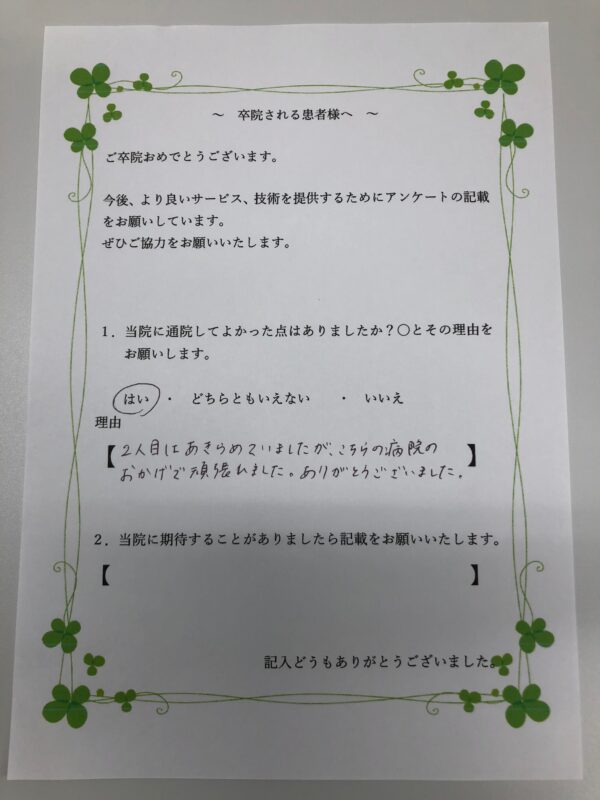 ～　卒院される患者様へ　～
ご卒院おめでとうございます。
今後、より良いサービス、技術を提供するためにアンケートの記載
をお願いしています。
ぜひご協力をお願いいたします。
1．当院に通院してよかった点はありましたか？〇とその理由を
お願いします。
はい ・ どちらともいえない ・ いいえ
理由
【2人目はあきらめていましたが、こちらの病院の
おかげで頑張れました。ありがとうございました。】
2．当院に期待することがありましたら記載をお願いいたします。
【 】
記入どうもありがとうございました。